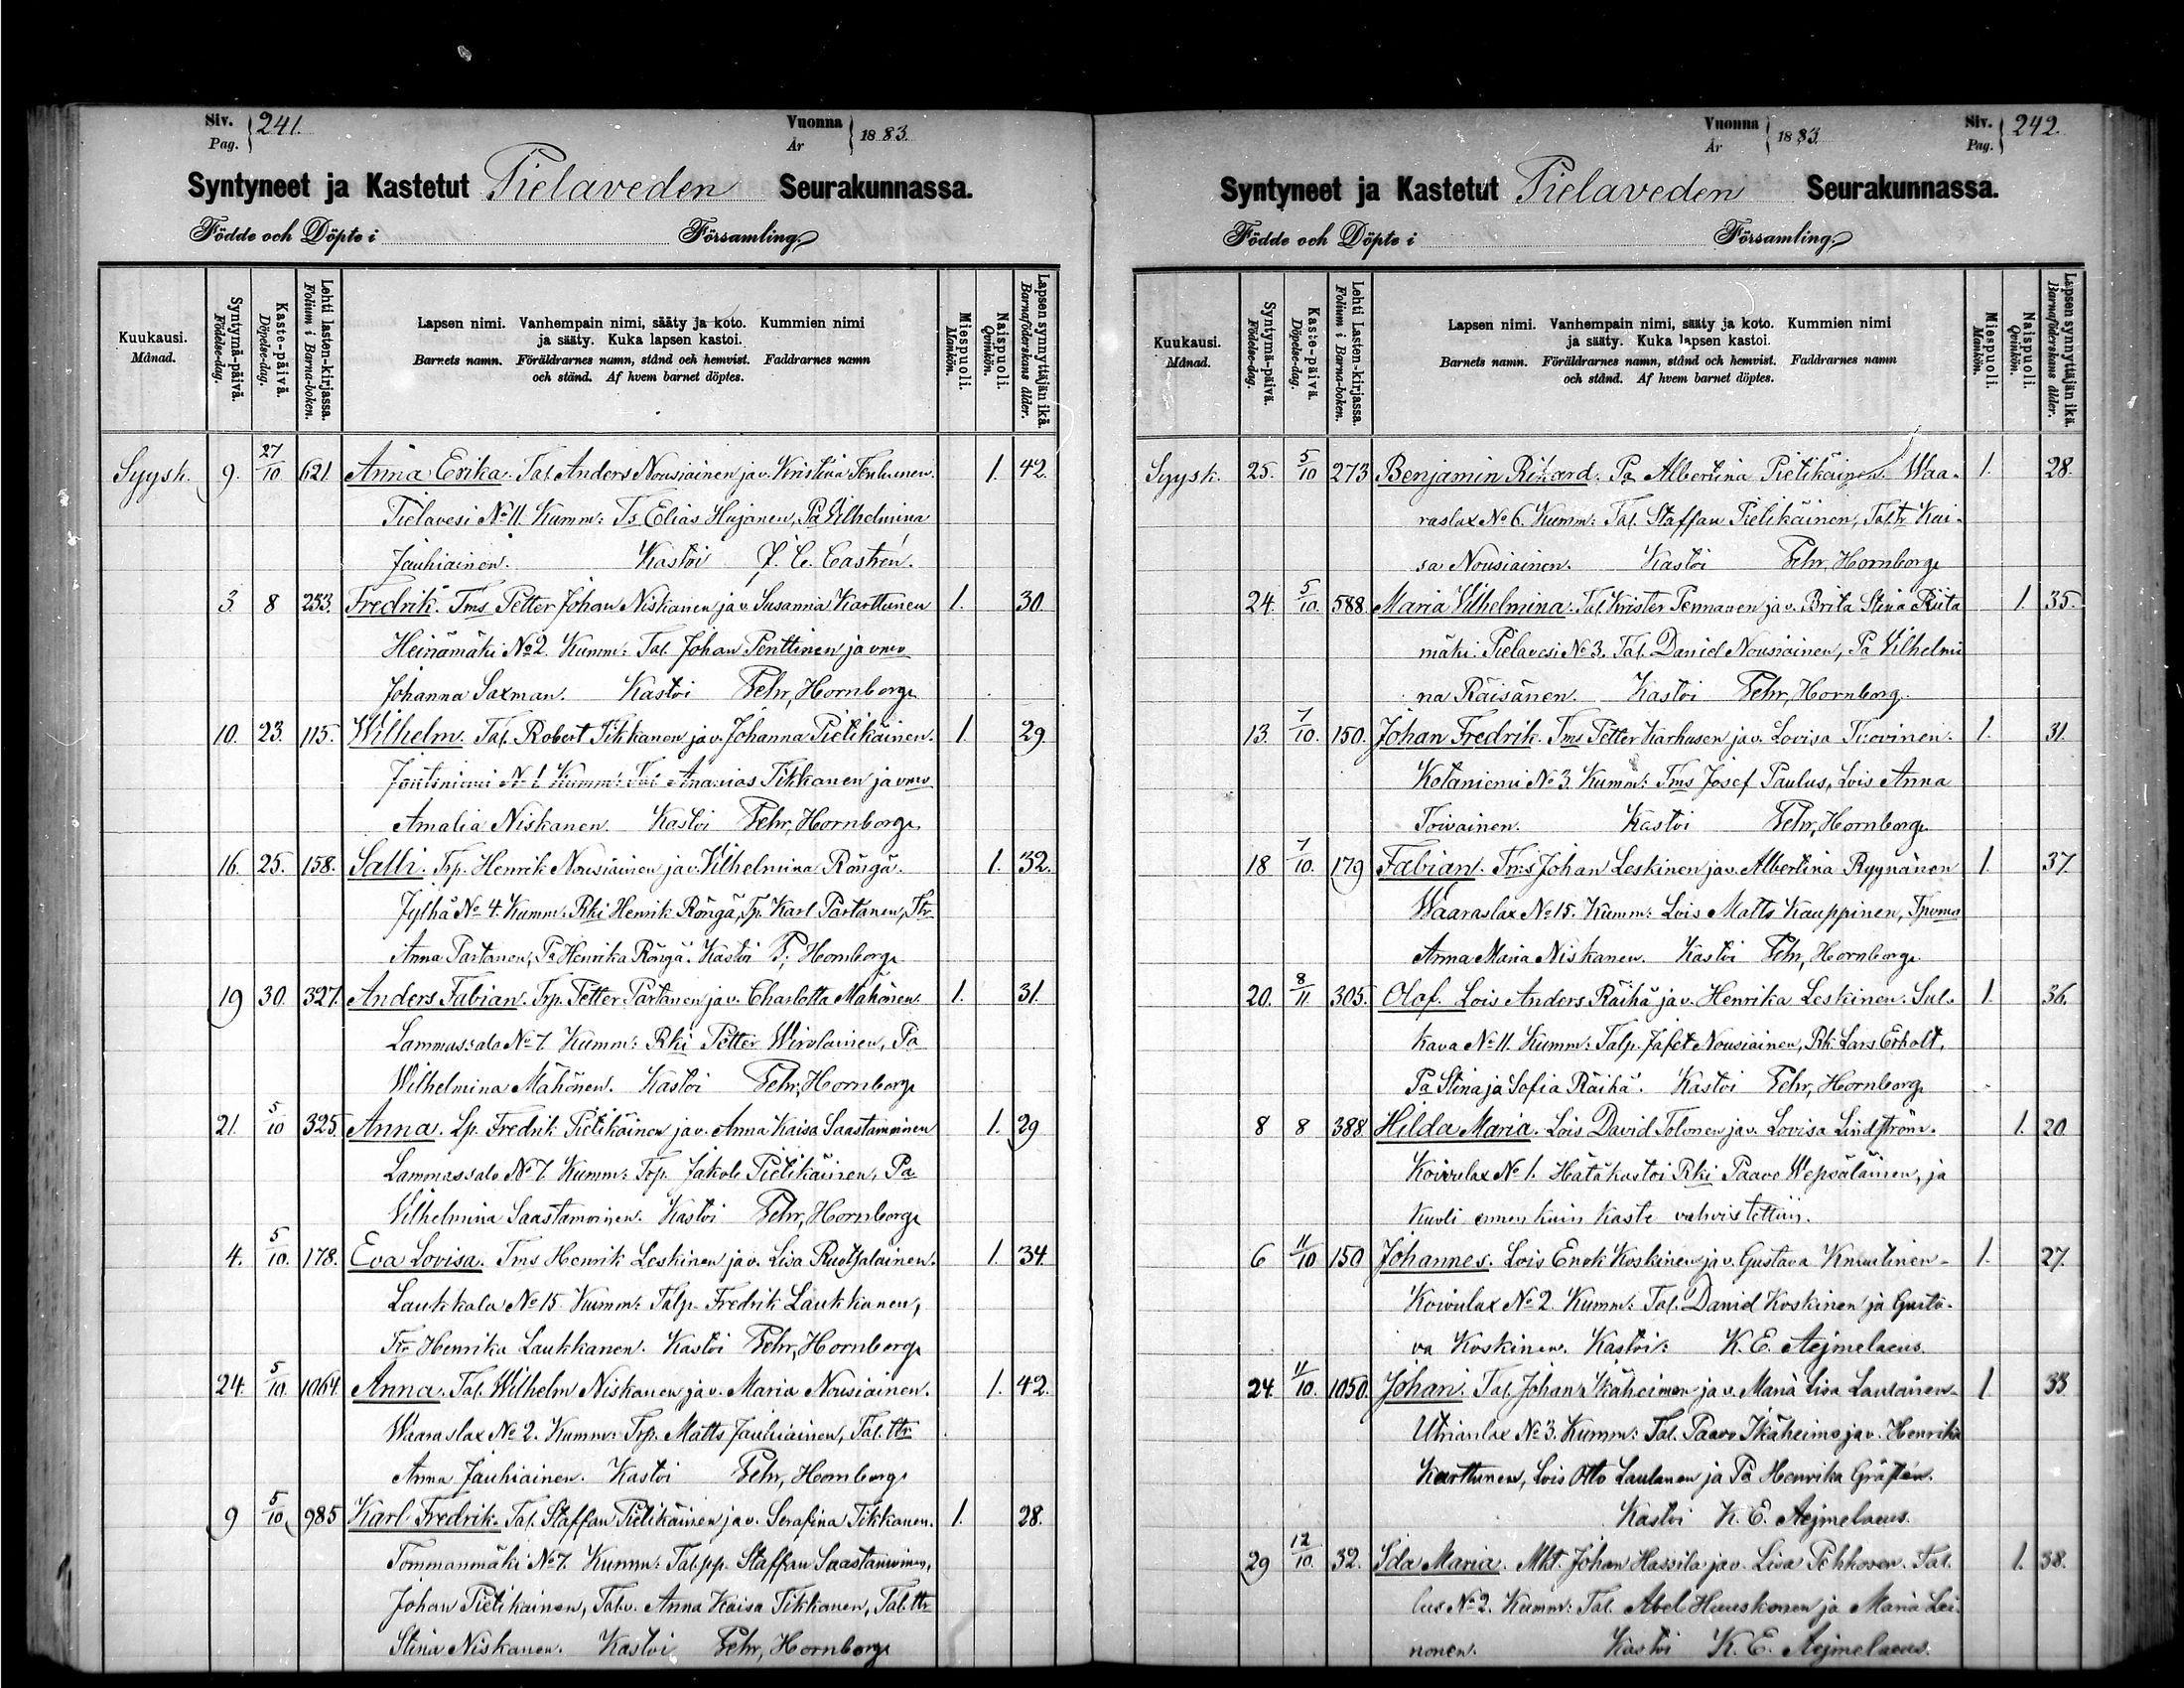 Siv. 241. Vuonna 1883.
Pag. År
Syntyneet ja Kastetut Pielaveden Seurakunnassa.
Födde och Döpte i Församling.
Kuukausi. Månad.
Syntymä-päivä. Födelse-dag.
Kaste-päivä. Döpelse-dag.
Lehti lasten-kirjassa. Folium i Barna-boken.
Lapsen nimi. Vanhempain nimi, sääty ja koto. Kummien nimi
ja sääty. Kuka lapsen kastoi.
Barnets namn. Föräldrarnes namn, stånd och hemvist. Faddrarnes namn
och stånd. Af hvem barnet döptes.
Miespuoli. Mankön.
Naispuoli. Qvinkön.
Lapsen synnyttäjän ikä. Barnaföderskans ålder.
Syysk. 9. 27/10 621 Anna Erika. Tal. Anders Nousiainen ja v. Kristina Tenhunen. 1. 42.
Pielavesi No 11. Kumm: Ts Elias Hujanen, Pa Vilhelmina
Jauhiainen. Kastoi F. C. Castrén.
3 8 253. Fredrik. Tms Petter Johan Niskanen ja v. Susanna Karttunen 1. 30
Heinämäki No 2. Kumm: Tal. Johan Penttinen ja vmo
Johanna Saxman. Kastoi Fehr, Hornborg
10. 23. 115. Wilhelm. Tal. Robert Tikkanen ja v. Johanna Pietikäinen. 1. 29
Joutsniemi No 1 Kumm: Tal Ananias Tikkanen ja vmo
Amalia Niskanen. Kastoi Fehr, Hornborg
16. 25. 158. Salli. Trp. Henrik Nousiainen ja v. Vilhelmina Röngä. 1. 32.
Jylhä No 4. Kumm: Rki Henrik Röngä, Tp. Karl Partanen, Ttr
Anna Partanen, Pa Henrika Röngä. Kastoi F, Hornborg
19 30. 327. Anders Fabian. Trp. Petter Partanen ja v. Charlotta Mähönen. 1. 31.
Lammassalo No 7. Kumm: Rki Petter Wirolainen, Pa
Wilhelmina Mähönen. Kastoi Fehr, Hornborg
21. 5/10 325. Anna. Lp. Fredrik Pietikäinen ja v. Anna Kaisa Saastamoinen 1. 29
Lammassalo No 7. Kumm: Trp. Jakob Pietikäinen, Pa
Vilhelmina Saastamoinen. Kastoi Fehr, Hornborg
4. 5/10. 178. Eva Lovisa. Tms Henrik Leskinen ja v. Lisa Ruotsalainen. 1. 34.
Laukkala No 15. Kumm: Talp. Fredrik Laukkanen,
Ttr Henrika Laukkanen. Kastoi Fehr, Hornborg
24. 5/10. 1064. Anna. Tal. Wilhelm Niskanen ja v. Maria Nousiainen. 1. 42.
Waaraslax No 2. Kumm: Trp. Matts Jauhiainen, Tal. ttr
Anna Jauhiainen. Kastoi Fehr, Hornborg
9 5/10 985 Karl Fredrik. Tal. Staffan Pietikäinen ja v. Serafina Tikkanen. 1. 28.
Tommanmäki No 7. Kumm: Tal. pp. Staffan Saastamoinen,
Johan Pietikainen, Tal.v. Anna Kaisa Tikkanen, Tal. ttr
Stina Niskanen. Kastoi Fehr, Hornborg
Vuonna 1883. Siv. 242.
År Pag.
Syntyneet ja Kastetut Pielaveden Seurakunnassa.
Födde och Döpte i Församling.
Kuukausi. Månad.
Syntymä-päivä. Födelse-dag.
Kaste-päivä. Döpelse-dag.
Lehti Lasten-kirjassa. Folium i Barna-boken.
Lapsen nimi. Vanhempain nimi, sääty ja koto. Kummien nimi
ja sääty. Kuka lapsen kastoi.
Barnets namn. Föräldrarnes namn, stånd och hemvist. Faddrarnes namn
och stånd. Af hvem barnet döptes.
Miespuoli. Mankön.
Naispuoli. Qvinkön.
Lapsen synnyttäjän ikä. Barnaföderskans ålder.
Syysk. 25. 5/10 273 Benjamin Rikard. Pa Albertina Pietikäinen. Waa- 1. 28.
raslax No 6. Kumm: Tal. Staffan Pietikäinen, Tal.tr Kai-
sa Nousiainen. Kastoi Fehr, Hornborg
24. 5/10. 588. Maria Vilhelmina. Tal. Krister Pennanen ja v. Brita Stina Riita 1. 35.
mäki. Pielavesi No 3. Tal. Daniel Nousiainen, Pa Vilhelmi
na Räisänen. Kastoi Fehr, Hornborg.
13. 7/10. 150. Johan Fredrik. Tms Petter Karhunen ja v. Lovisa Tuovinen. 1. 31.
Kotaniemi No 3. Kumm: Tms Josef Paulus, Lois Anna
Toivainen. Kastoi Fehr, Hornborg
18 7/10. 179 Fabian. Tms Johan Leskinen ja v. Albertina Ryynänen 1. 37.
Waaraslax No 15. Kumm: Lois Matts Kauppinen, Tpvmo
Anna Maria Niskanen. Kastoi Fehr, Hornborg
20. 8/11 305. Olof. Lois Anders Räihä ja v. Henrika Leskinen. Sul- 1. 36.
kava No 11. Kumm: Talp. Jafet Nousiainen, Rk. Lars Erholt,
Pa Stina ja Sofia Räihä. Kastoi Fehr, Hornborg
8 8 388 Hilda Maria. Lois David Tolonen ja v. Lovisa Lindström. 1. 20
Koivulax No 1. Hätäkastoi Rki Paavo Wepsäläinen, ja
kuoli ennen kuin kaste vahvistettiin.
6 11/10 150 Johannes. Lois Enok Koskinen ja v. Gustava Knuutinen. 1. 27.
Koivulax No 2. Kumm: Tal. David Koskinen ja Gusta-
va Koskinen. Kastoi: K. E. Aejmelaeus.
24. 11/10. 1050. Johan. Tal. Johan Ikäheimon ja v. Maria Lisa Laulainen. 1. 33
Utrianlax No 3. Kumm: Tal. Paavo Ikäheimo ja v. Henrika
Karttunen, Lois Otto Laulanen ja Pa Henrika Grästen.
Kastoi K. E. Aejmelaeus.
29 12/10. 32. Ida Maria. Mkt. Johan Hassila ja v. Lisa Pehkonen. Tal. 1. 38.
lus No 2. Kumm: Tal. Abel Huuskonen ja Maria Lei-
nonen. Kastoi K. E. Aejmelaeus.